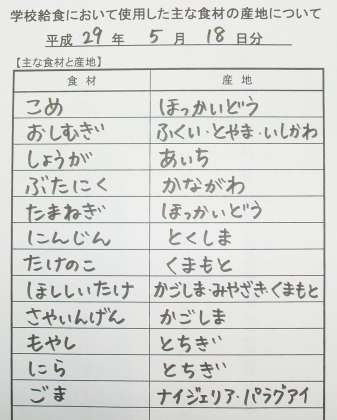 学校給食において使用した主な食材の産地について
平成 29 年 5 月 18 日分
【主な食材と産地】
食 材 産 地
こめ ほっかいどう
おしむぎ ふくい・とやま・いしかわ
しょうが あいち
ぶたにく かながわ
たまねぎ ほっかいどう
にんじん とくしま
たけのこ くまもと
ほししいたけ かごしま・みやざき・くまもと
さやいんげん かごしま
もやし とちぎ
にら とちぎ
ごま ナイジェリア・パラグアイ